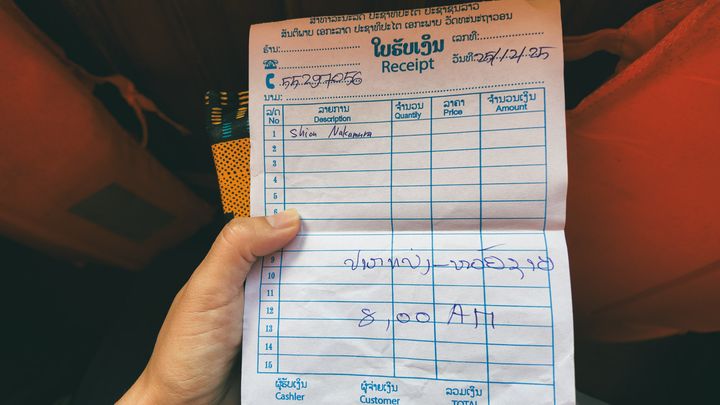 ສາທາລະນະລັດ ປະຊາທິປະໄຕ ປະຊາຊົນລາວ
ສັນຕິພາບ ເອກະລາດ ປະຊາທິປະໄຕ ເອກະພາບ ວັດທະນະຖາວອນ
ຮ້ານ: ເລກທີ:
ໃບຮັບເງິນ
Receipt
ວັນທີ: 25/12/25
55297256
ນາມ:
ລ/ດ No ລາຍການ Description ຈຳນວນ Quantity ລາຄາ Price ຈຳນວນເງິນ Amount
1 Shion Nakamura
2
3
4
5
6
9 ປາກທ່ງ - ຫ້ວຍຊາຍ
10
11
12 8,00 AM
13
14
15
ຜູ້ຮັບເງິນ ຜູ້ຈ່າຍເງິນ ລວມເງິນ
Cashler Customer TOTAL